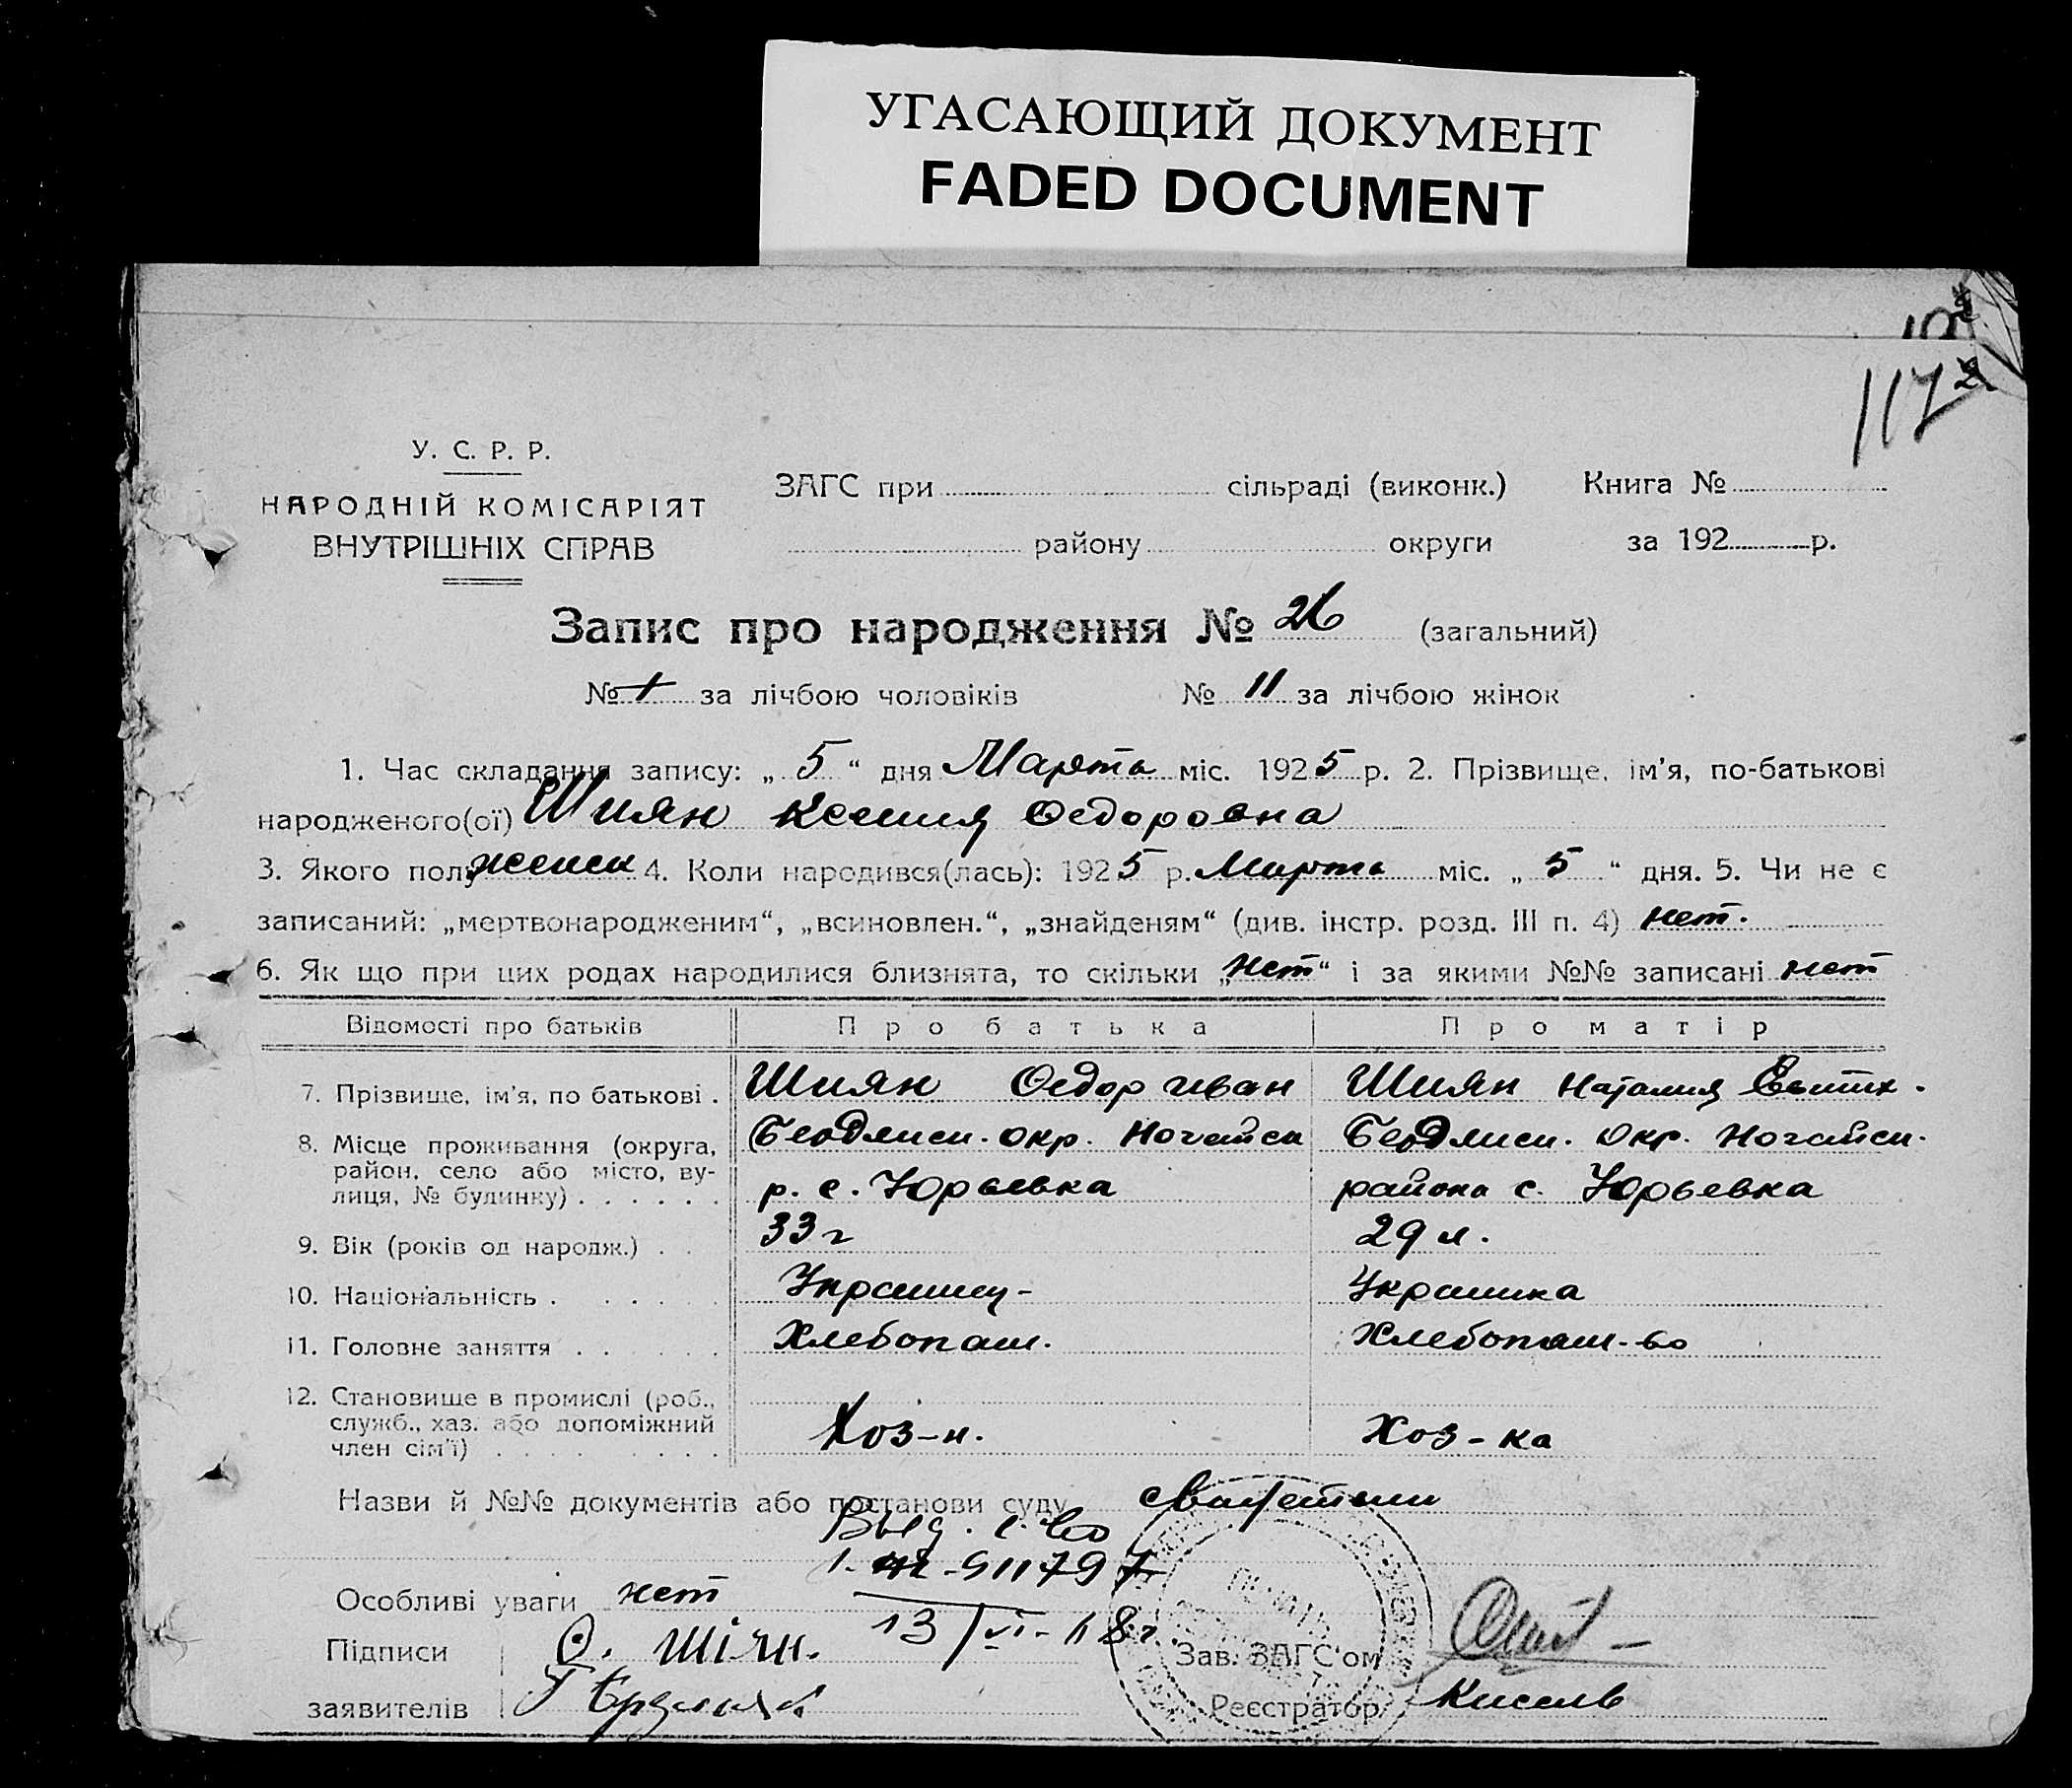 УГАСАЮЩИЙ ДОКУМЕНТ
FADED DOCUMENT
117
У. С. Р. Р.
НАРОДНІЙ КОМІСАРІЯТ
ВНУТРІШНІХ СПРАВ
ЗАГС при сільраді (виконк.) Книга №
району округи за 192 р.
Запис про народження № 26 (загальний)
№ за лічбою чоловіків № 11 за лічбою жінок
1. Час складання запису: „ 5 “ дня Марта міс. 1925 р. 2. Прізвище, ім'я, по-батькові
народженого(ої) Шиян Ксения Федоровна
3. Якого полу женск 4. Коли народився(лась): 1925 р. Марта міс. „ 5 “ дня. 5. Чи не є
записаний: „мертвонародженим“, „всиновлен.“, „знайденям“ (див. інстр. розд. III п. 4) нет.
6. Як що при цих родах народилися близнята, то скільки „нет“ і за якими №№ записані нет
Відомості про батьків Про батька Про матір
7. Прізвище, ім'я, по батькові . Шиян Федор Иван Шиян Наталия
8. Місце проживання (округа, район, село або місто, вулиця, № будинку) . . . . . .
окр. Ногайск
р. с. Юрьевка
окр. Ногайск.
района с. Юрьевка
9. Вік (років од народж.) . . 33 г 29 л.
10. Національність . . . . . Украинец- Украинка
11. Головне заняття . . . . . . Хлебопаш. Хлебопаш-во
12. Становище в промислі (роб., служб., хаз. або допоміжний член сім'ї) . . . . . . . . .
Хоз-н. Хоз-ка
Назви й №№ документів або постанови суду
Выд. с-во
911797
Особливі уваги нет
13/VI-68г.
Підписи Ф. Шіян. Зав. ЗАГС'ом
заявителів Реєстратор Кисель